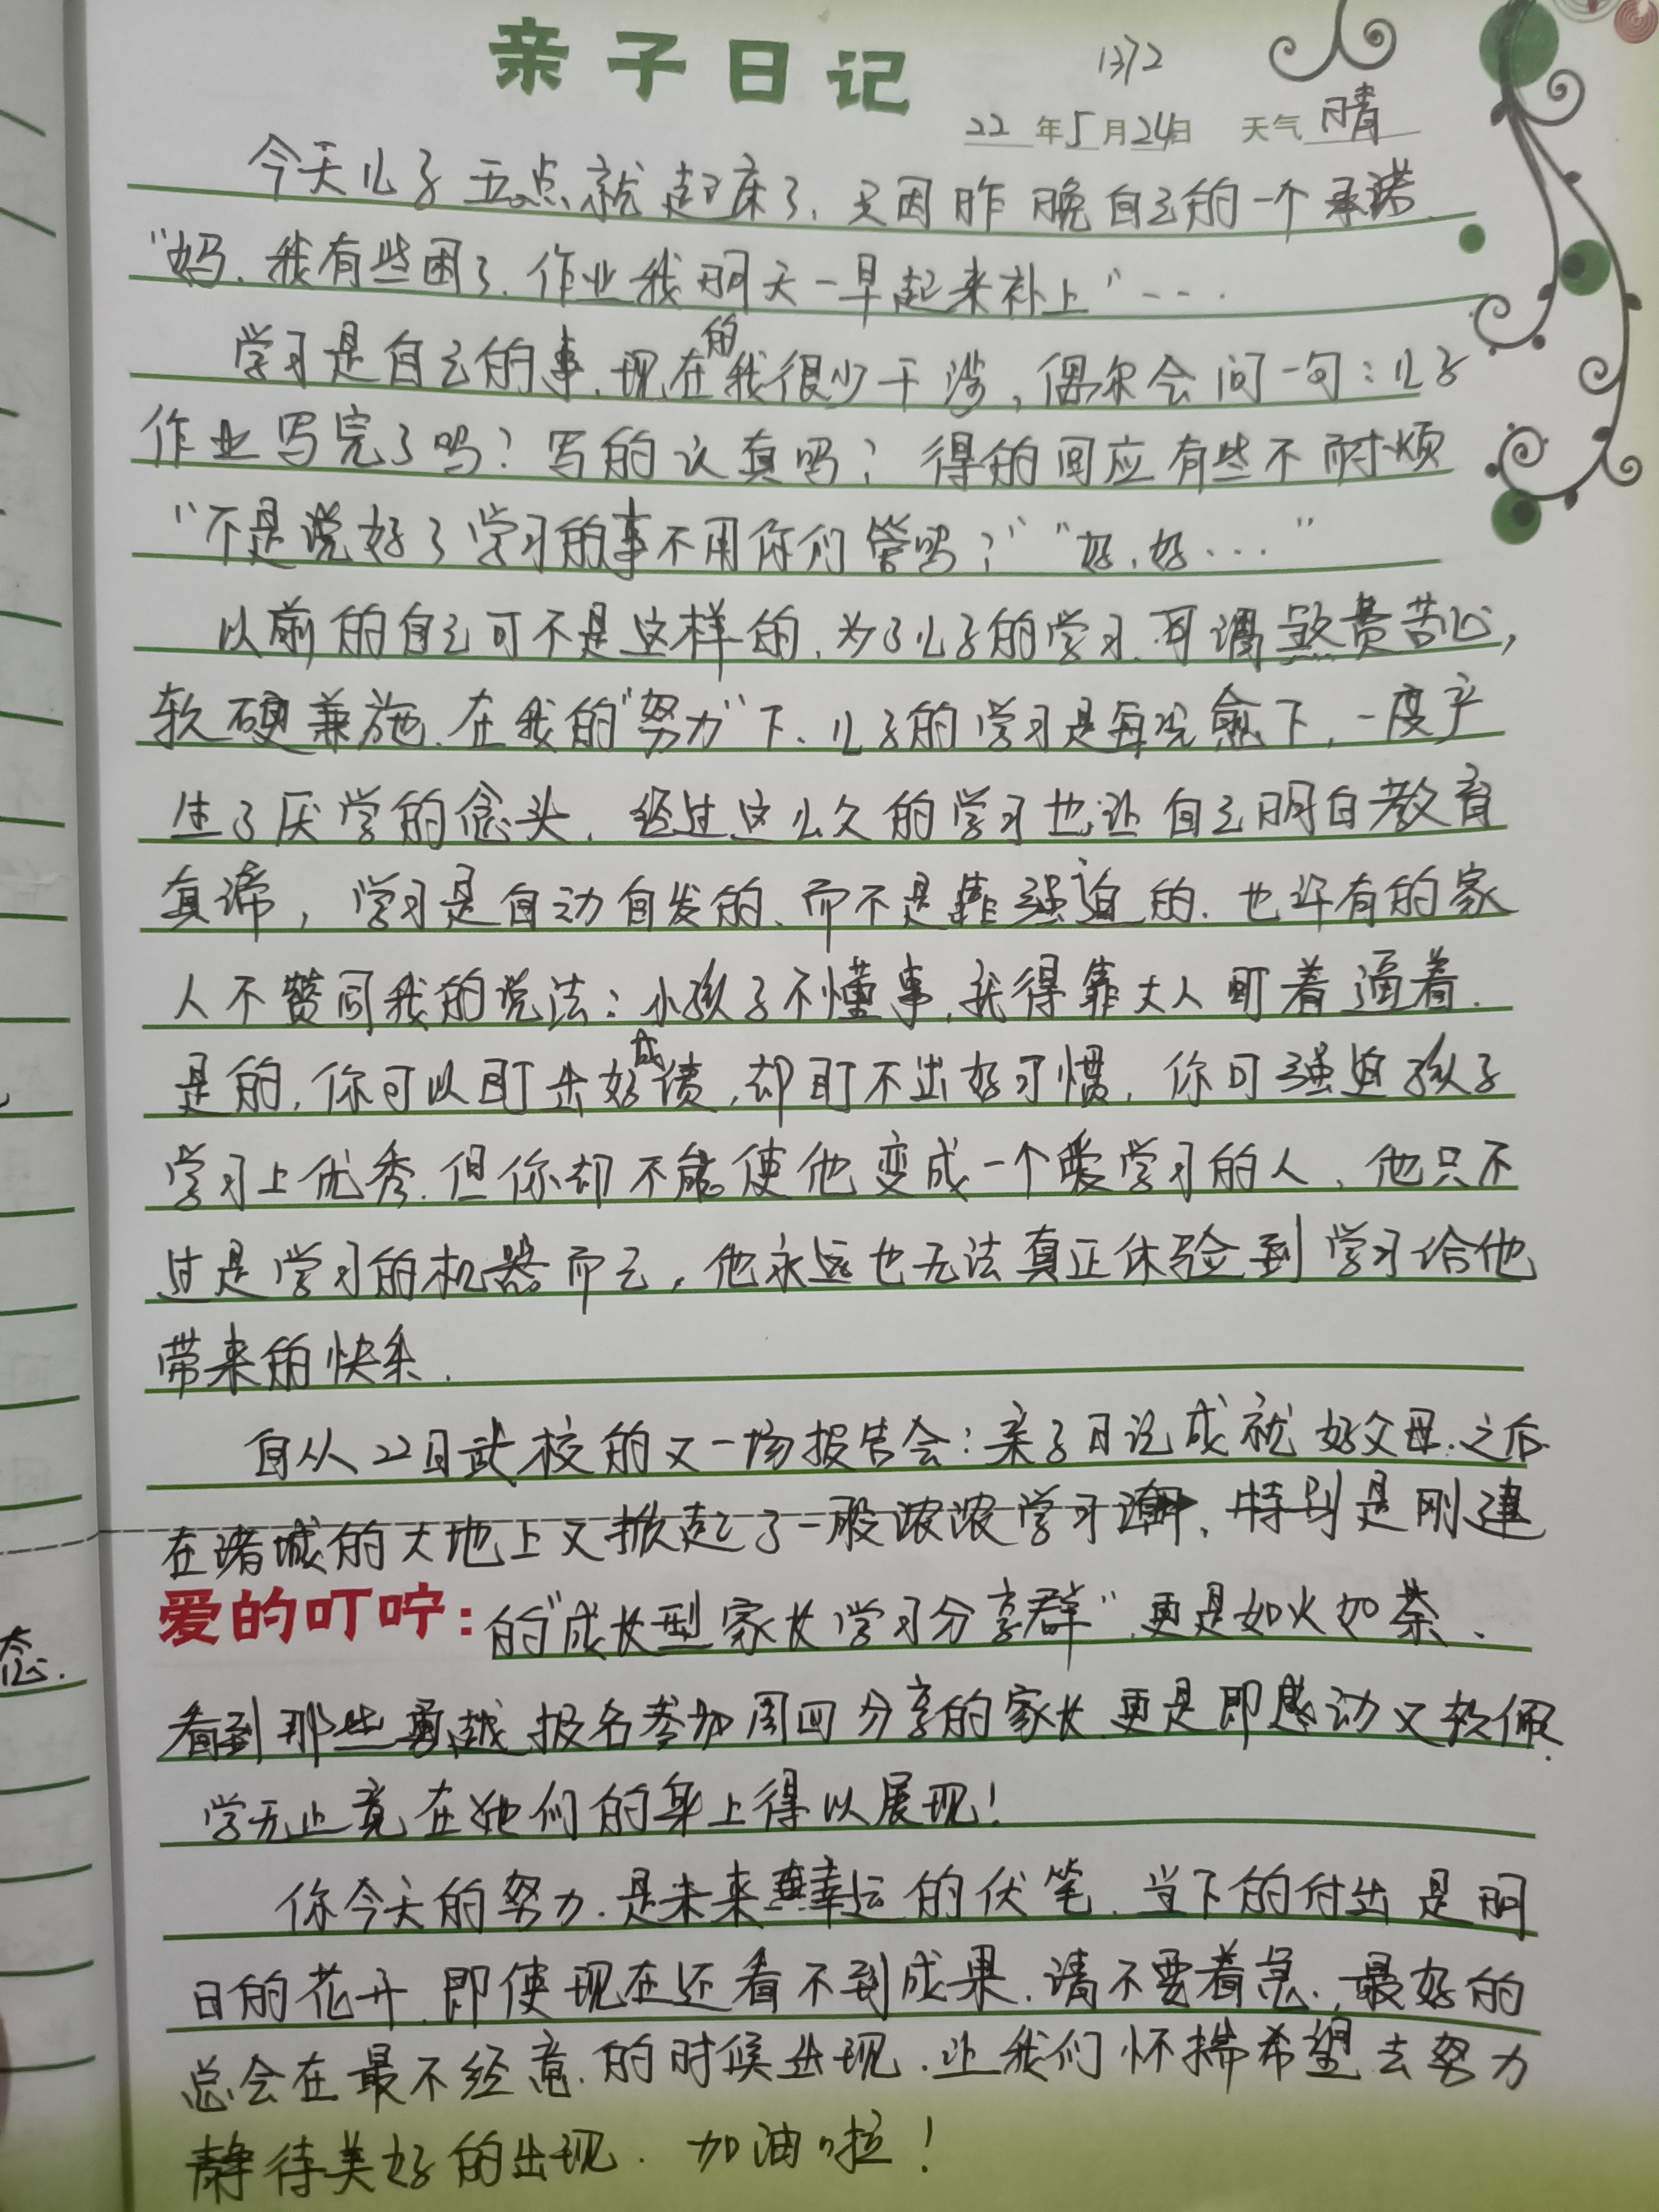 亲子日记
1372
22年5月24日 天气 晴
今天儿子五点就起床了，只因昨晚自己的一个承诺
“妈，我有些困了，作业我明天一早起来补上”...
学习是自己的事，现在的我很少干涉，偶尔会问一句：儿子
作业写完了吗？写的认真吗？得的回应有些不耐烦
“不是说好了学习的事不用你们管吗？”“好，好...”
以前的自己可不是这样的，为了儿子的学习，可谓煞费苦心，
软硬兼施，在我的“努力”下，儿子的学习是每况愈下，一度产
生了厌学的念头，经过这么久的学习也让自己明白教育
真谛，学习是自动自发的，而不是靠强迫的，也许有的家
人不赞同我的说法：小孩子不懂事，就得靠大人盯着逼着，
是的，你可以盯出好成绩，却盯不出好习惯，你可强迫孩子
学习上优秀，但你却不能使他变成一个爱学习的人，他只不
过是学习的机器而已，他永远也无法真正体验到学习给他
带来的快乐．
自从22日武校的又一场报告会：亲子日记成就好父母，之后
在诸城的大地上又掀起了一股浓浓学习潮，特别是刚建
爱的叮咛：的“成长型家长学习分享群”，更是如火如荼、
看到那些踊跃报名参加周四分享的家长，更是即感动又钦佩．
学无止竟在她们的身上得以展现！
你今天的努力，是未来幸运的伏笔，当下的付出是明
日的花开，即使现在还看不到成果，请不要着急，最好的
总会在最不经意的时候出现，让我们怀揣希望去努力
静待美好的出现．加油啦！
态．